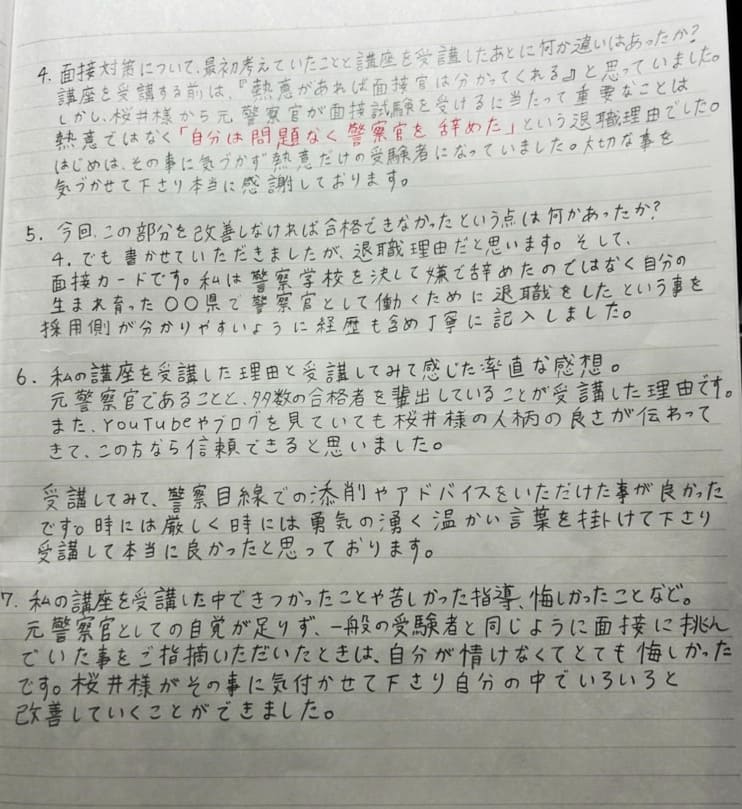 4. 面接対策について、最初考えていたことと講座を受講したあとに何か違いはあったか?
講座を受講する前は、『熱意があれば面接官は分かってくれる』と思っていました。
しかし、桜井様から元警察官が面接試験を受けるに当たって重要なことは
熱意ではなく「自分は問題なく警察官を辞めた」という退職理由でした。
はじめは、その事に気づかず熱意だけの受験者になっていました。大切な事を
気づかせて下さり本当に感謝しております。
5. 今回、この部分を改善しなければ合格できなかったという点は何かあったか?
4. でも書かせていただきましたが、退職理由だと思います。そして、
面接カードです。私は警察学校を決して嫌で辞めたのではなく自分の
生まれ育った〇〇県で警察官として働くために退職をしたという事を
採用側が分かりやすいように経歴も含め丁寧に記入しました。
6. 私の講座を受講した理由と受講してみて感じた率直な感想。
元警察官であることと、多数の合格者を輩出していることが受講した理由です。
また、YouTubeやブログを見ていても桜井様の人柄の良さが伝わって
きて、この方なら信頼できると思いました。
受講してみて、警察目線での添削やアドバイスをいただけた事が良かった
です。時には厳しく時には勇気の湧く温かい言葉を掛けて下さり
受講して本当に良かったと思っております。
7. 私の講座を受講した中できつかったことや苦しかった指導、悔しかったことなど。
元警察官としての自覚が足りず、一般の受験者と同じように面接に挑ん
でいた事をご指摘いただいたときは、自分が情けなくてとても悔しかった
です。桜井様がその事に気付かせて下さり自分の中でいろいろと
改善していくことができました。